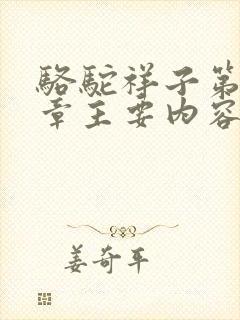 骆驼祥子第
章主要内容
姜奇平